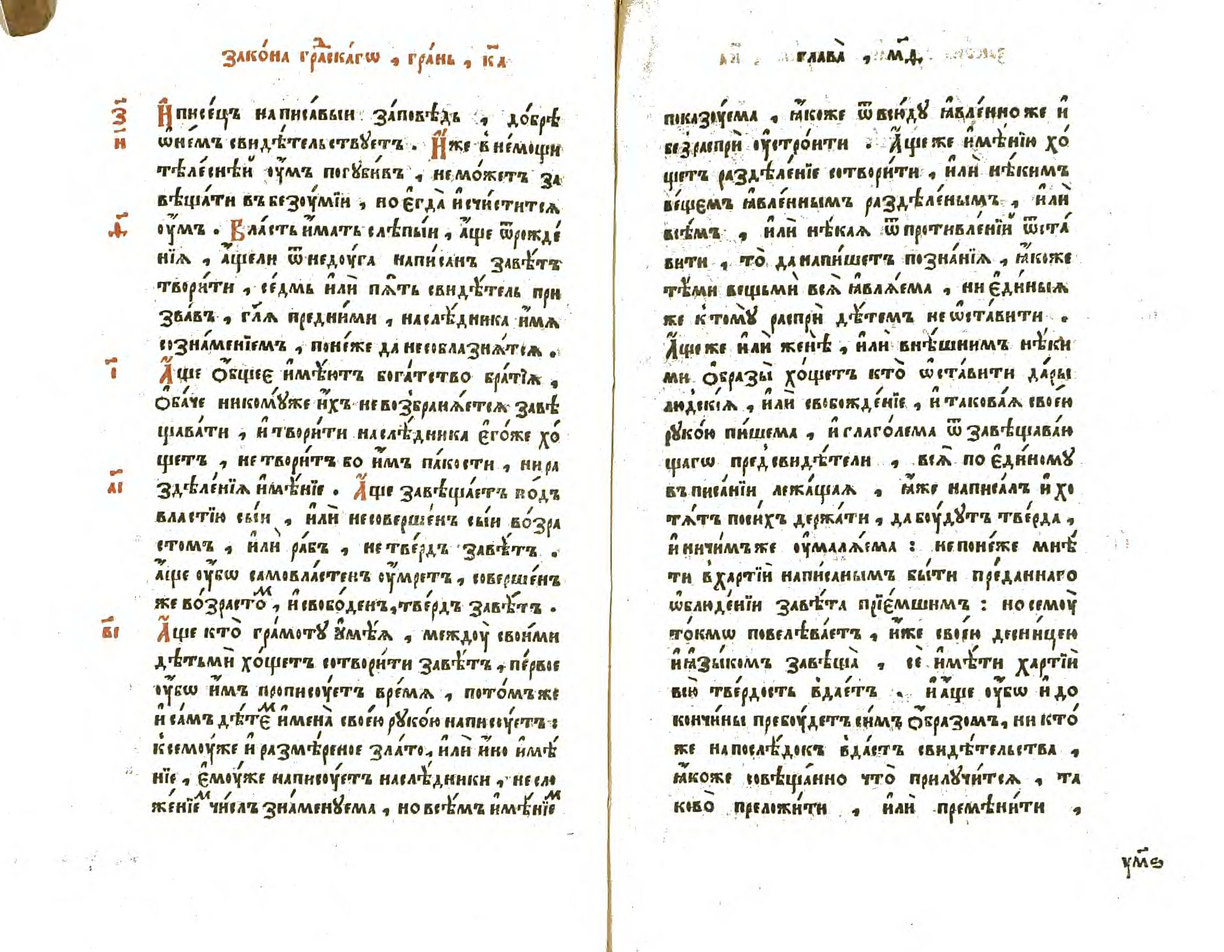 зако́на гра́дскагѡ , гра́нь , к҃а
з҃ И҆писе́цъ написа́выи за́повѣдь , до́брѣ
и҃ ѡ҆не́мъ свидѣ́тельствуетъ . И҆́же в̾не́мощи
тѣле́снѣй ᲂу҆́мъ погꙋби́въ , немо́жетъ за
вѣща́ти въбезꙋ́мїи , но є҆гда̀ и҆счи́стится
д҃ ᲂу҆́мъ . Вла́сть и҆́мать слѣпы́и , а҆́ще ѿрожде́
нїѧ , а҆́щели ѿнедꙋ́га написа́нъ завѣ́тъ
твори́ти , се́дмь и҆лѝ пѧ́ть свидѣ́тель при
зва́въ , гл҃ѧ пре́дними , наслѣ́дника и҆́мѧ
созна́менїемъ , поне́же да несоблазнѧ́тсѧ .
і҃ А҆́ще ѻ҆́бщее и҆мѣ́ютъ бога́тство бра́тїѧ ,
ѻ҆ба́че никомꙋ́же и҆́хъ невозбранѧ́етсѧ завѣ
щава́ти , и҆ твори́ти наслѣ́дника є҆го́же хо́
щетъ , не твори́тъ бо и҆̀мъ па́кости , ни ра
а҃і здѣле́нїѧ и҆мѣ́нїе . А҆́ще завѣща́етъ по́дъ
вла́стїю сы́и , и҆лѝ несоверше́нъ сы́и во́зра
стомъ , и҆лѝ ра́бъ , не тве́рдъ завѣ́тъ .
а҆́ще ᲂу҆́бѡ самовла́стенъ ᲂу҆́мретъ , соверше́нъ
же во́зрастоⷨ , и҆ свобо́денъ, тве́рдъ завѣ́тъ .
в҃і А҆́ще кто̀ гра́мотꙋ ᲂу҆мѣ́ѧ , междꙋ̀ свои́ми
дѣтьмѝ хо́щетъ сотвори́ти завѣ́тъ , пе́рвое
ᲂу҆́бѡ и҆̀мъ прописꙋ́етъ вре́мѧ , пото́мъже
и҆ са́мъ дѣ́теⷨ и҆мена̀ свое́ю рꙋко́ю написꙋ́етъ :
к̾семꙋ́же и҆ размѣ́реное зла́то , и҆лѝ и҆́но и҆мѣ́
нїе , є҆мꙋ́же написꙋ́етъ наслѣ́дники , не сло
же́нїеⷨ чи́слъ зна́менꙋема , но всѣ́мъ и҆мѣ́нїеⷨ
глава̀ , м҃д
показꙋ́ема , ꙗ҆́коже ѿвсю́дꙋ ꙗ҆вле́нно же и҆
безра́спри ᲂу҆стро́ити . А҆́ще же и҆мѣ́нїю хо́
щетъ раздѣле́нїе сотвори́ти , и҆лѝ нѣ́кимъ
ве́щемъ ꙗ҆вле́ннымъ раздѣле́нымъ , и҆лѝ
всѣ́мъ , и҆лѝ нѣ́каѧ ѿ проти́вленїй ѡ҆ста́
вити , то̀ да напи́шетъ позна́нїѧ , ꙗ҆́коже
тѣ́ми вещьмѝ всѧ̀ ꙗ҆влѧ́ема , ни є҆ди́ныѧ
же к̾томꙋ̀ ра́спри дѣ́темъ не ѡ҆ста́вити .
А҆́ще же и҆лѝ женѣ̀ , и҆лѝ внѣ́шнимъ нѣ́ки
ми ѻ҆́бразы хо́щетъ кто̀ ѡ҆ста́вити да́ры
людскі́ѧ , и҆лѝ свобожде́нїе , и҆ такова́ѧ свое́ю
рꙋко́ю пи́шема , и҆ глаго́лема ѿ завѣщава́ю
щагѡ пред̾свидѣ́тели , всѧ̀ по є҆ди́номꙋ
въ писа́нїи лежа́щаѧ , ꙗ҆́же написа́лъ и҆ хо
тѧ́тъ поси́хъ держа́ти , да бꙋ́дꙋтъ тве́рда ,
и҆ ничи́мъже ᲂу҆малѧ́ема : не поне́же мнѣ́
ти в̾харті́й напи́санымъ бы́ти пре́даннаго
ѡ҆блюде́нїи завѣ́та прїе́мшимъ : но семꙋ̀
то́кмѡ повелѣва́етъ , и҆́же свое́ю десни́цею
и҆ ꙗ҆зы́комъ завѣща̀ , сѐ и҆мѣ́ти харті́й
всю̀ тве́рдость вда́етъ . и҆ а҆́ще ᲂу҆́бѡ и҆ до
кончи́ны пребꙋ́детъ си́мъ ѻ҆́бразомъ, ни кто́
же напослѣ́докъ вда́стъ свидѣ́тельства ,
ꙗ҆́коже совѣща́нно что̀ прилꙋчи́тсѧ , та
ково̀ преложи́ти , и҆лѝ премѣни́ти ,
ум҃ѳ